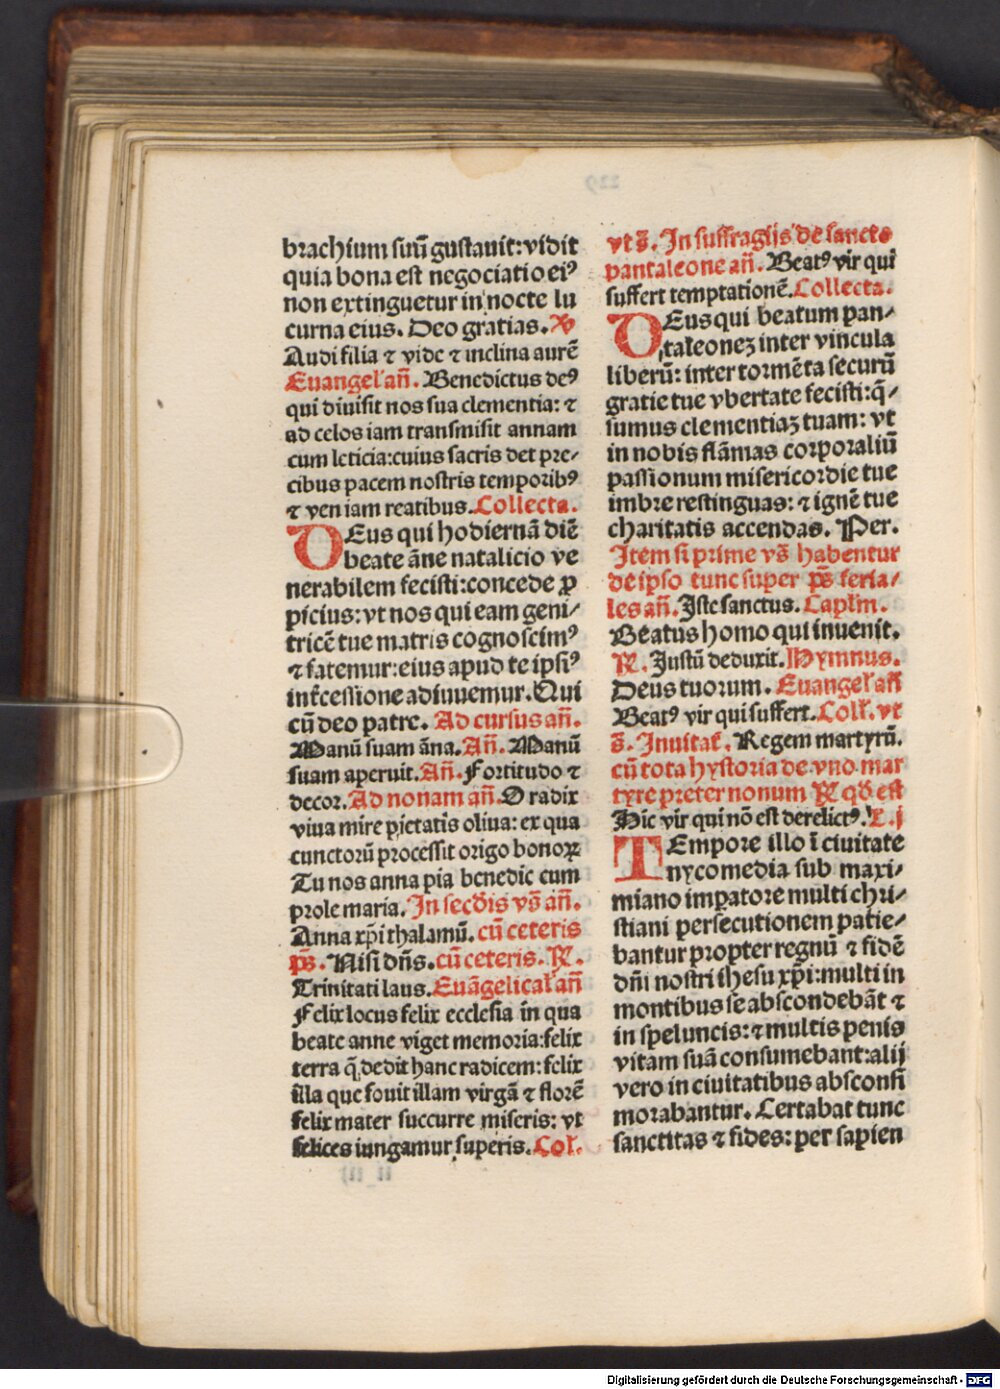 brachium suū gustauit: vidit
quia bona est negociatio ei⁹
non extinguetur in nocte lu
curna eius. Deo gratias. ℣
Audi filia ⁊ vide ⁊ inclina aurē
Euangel' añ. Benedictus de⁹
qui diuisit nos sua clementia: ⁊
ad celos iam transmisit annam
cum leticia: cuius sacris det pre-
cibus pacem nostris temporib⁹
⁊ ven iam reatibus. Collecta.
DEus qui hodiernā diē
beate āne natalicio ve
nerabilem fecisti: concede ꝓ
picius: vt nos qui eam geni-
tricē tue matris cognoscim⁹
⁊ fatemur: eius apud te ipsi⁹
int̄cessione adiuuemur. Qui
cū deo patre. Ad cursus añ.
Manū suam āna. Añ. Manū
suam aperuit. Añ. Fortitudo ⁊
decor. Ad nonam añ. O radix
viua mire pietatis oliua: ex qua
cunctorū processit origo bonoꝝ
Tu nos anna pia benedic cum
prole maria. In secōis vs̄ añ.
Anna xp̄i thalamū. cū ceteris
ps̄. Nisi dn̄s. cū ceteris. ℟.
Trinitati laus. Euāgelical' añ
Felix locus felix ecclesia in qua
beate anne viget memoria: felix
terra q̄ dedit hanc radicem: felix
illa que fouit illam virgā ⁊ florē
felix mater succurre miseris: vt
felices iungamur superis. Col'.
vt s̄. In suffragijs de sancto
pantaleone añ. Beat⁹ vir qui
suffert temptationē. Collecta.
DEus qui beatum pan-
taleoneꝫ inter vincula
liberū: inter tormēta securū
gratie tue vbertate fecisti: q̄-
sumus clementiaꝫ tuam: vt
in nobis flāmas corporaliū
passionum misericordie tue
imbre restinguas: ⁊ ignē tue
charitatis accendas. Per.
Item si prime vs̄ habentur
de ipso tunc super ps̄ feria-
les añ. Iste sanctus. Caplm.
Beatus homo qui inuenit.
℟. Justū deduxit. Hymnus.
Deus tuorum. Euangel' añ
Beat⁹ vir qui suffert. Coll'. vt
s̄. Inuitat'. Regem martyrū.
cū tota hystoria de vno mar
tyre preter nonum ℟ qd̄ est
Hic vir qui nō est derelict⁹. L. j
TEmpore illo ī ciuitate
nycomedia sub maxi-
miano imꝑatore multi chri-
stiani persecutionem patie-
bantur propter regnū ⁊ fidē
dn̄i nostri ihesu xp̄i: multi in
montibus se abscondebāt ⁊
in speluncis: ⁊ multis penis
vitam suā consumebant: alij
vero in ciuitatibus absconsi
morabantur. Certabat tunc
sanctitas ⁊ fides: per sapien
Digitalisierung gefördert durch die Deutsche Forschungsgemeinschaft - DFG